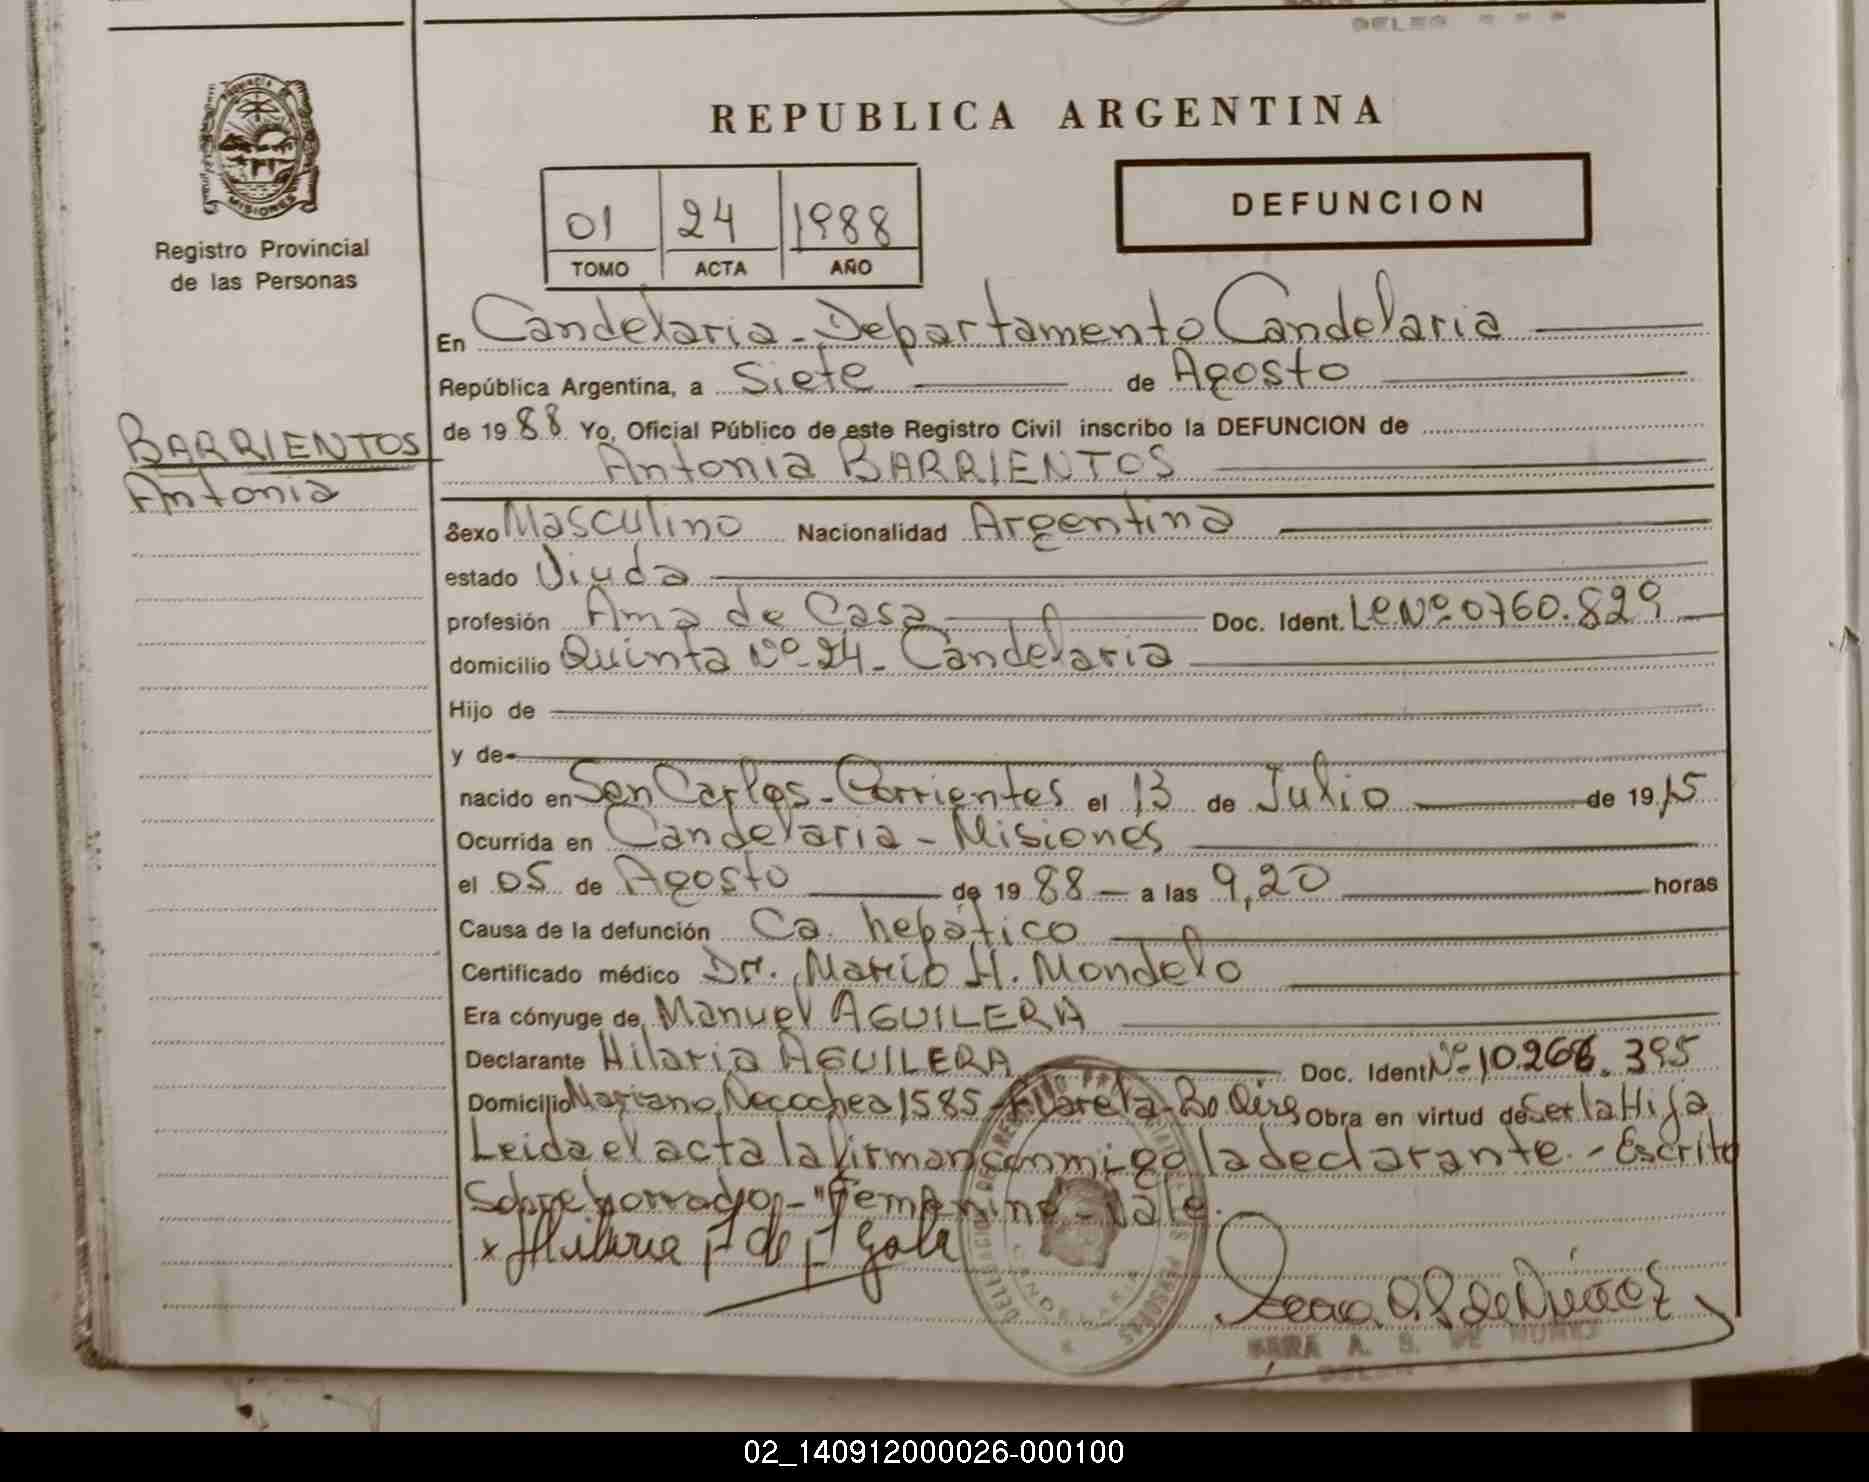 PROVINCIA DE
MISIONES
Registro Provincial
de las Personas
BARRIENTOS
Antonia
REPUBLICA ARGENTINA
01 24 1988
TOMO ACTA AÑO
DEFUNCION
En Candelaria - Departamento Candelaria
República Argentina, a Siete de Agosto
de 1988 Yo, Oficial Público de este Registro Civil inscribo la DEFUNCION de
Antonia BARRIENTOS
Sexo Masculino Nacionalidad Argentina
estado Viuda
profesión Ama de Casa Doc. Ident. LC Nº 0760.829
domicilio Quinta Nº 24 - Candelaria
Hijo de
y de
nacido en San Carlos - Corrientes el 13 de Julio de 1915
Ocurrida en Candelaria - Misiones
el 05 de Agosto de 1988 - a las 9,20 horas
Causa de la defunción Ca. hepático
Certificado médico Dr. Mario H. Mondelo
Era cónyuge de Manuel AGUILERA
Declarante Hilaria AGUILERA Doc. Ident Nº 10.268.395
Domicilio Mariano Necochea 1585 - Bs Aires Obra en virtud de Ser la Hija
Leida el acta la firman conmigo la declarante. - Escrito
Sobre borrado - "Femenino - Vale.
x Hilaria A de
SARA A. S. DE NUÑEZ
02_140912000026-000100